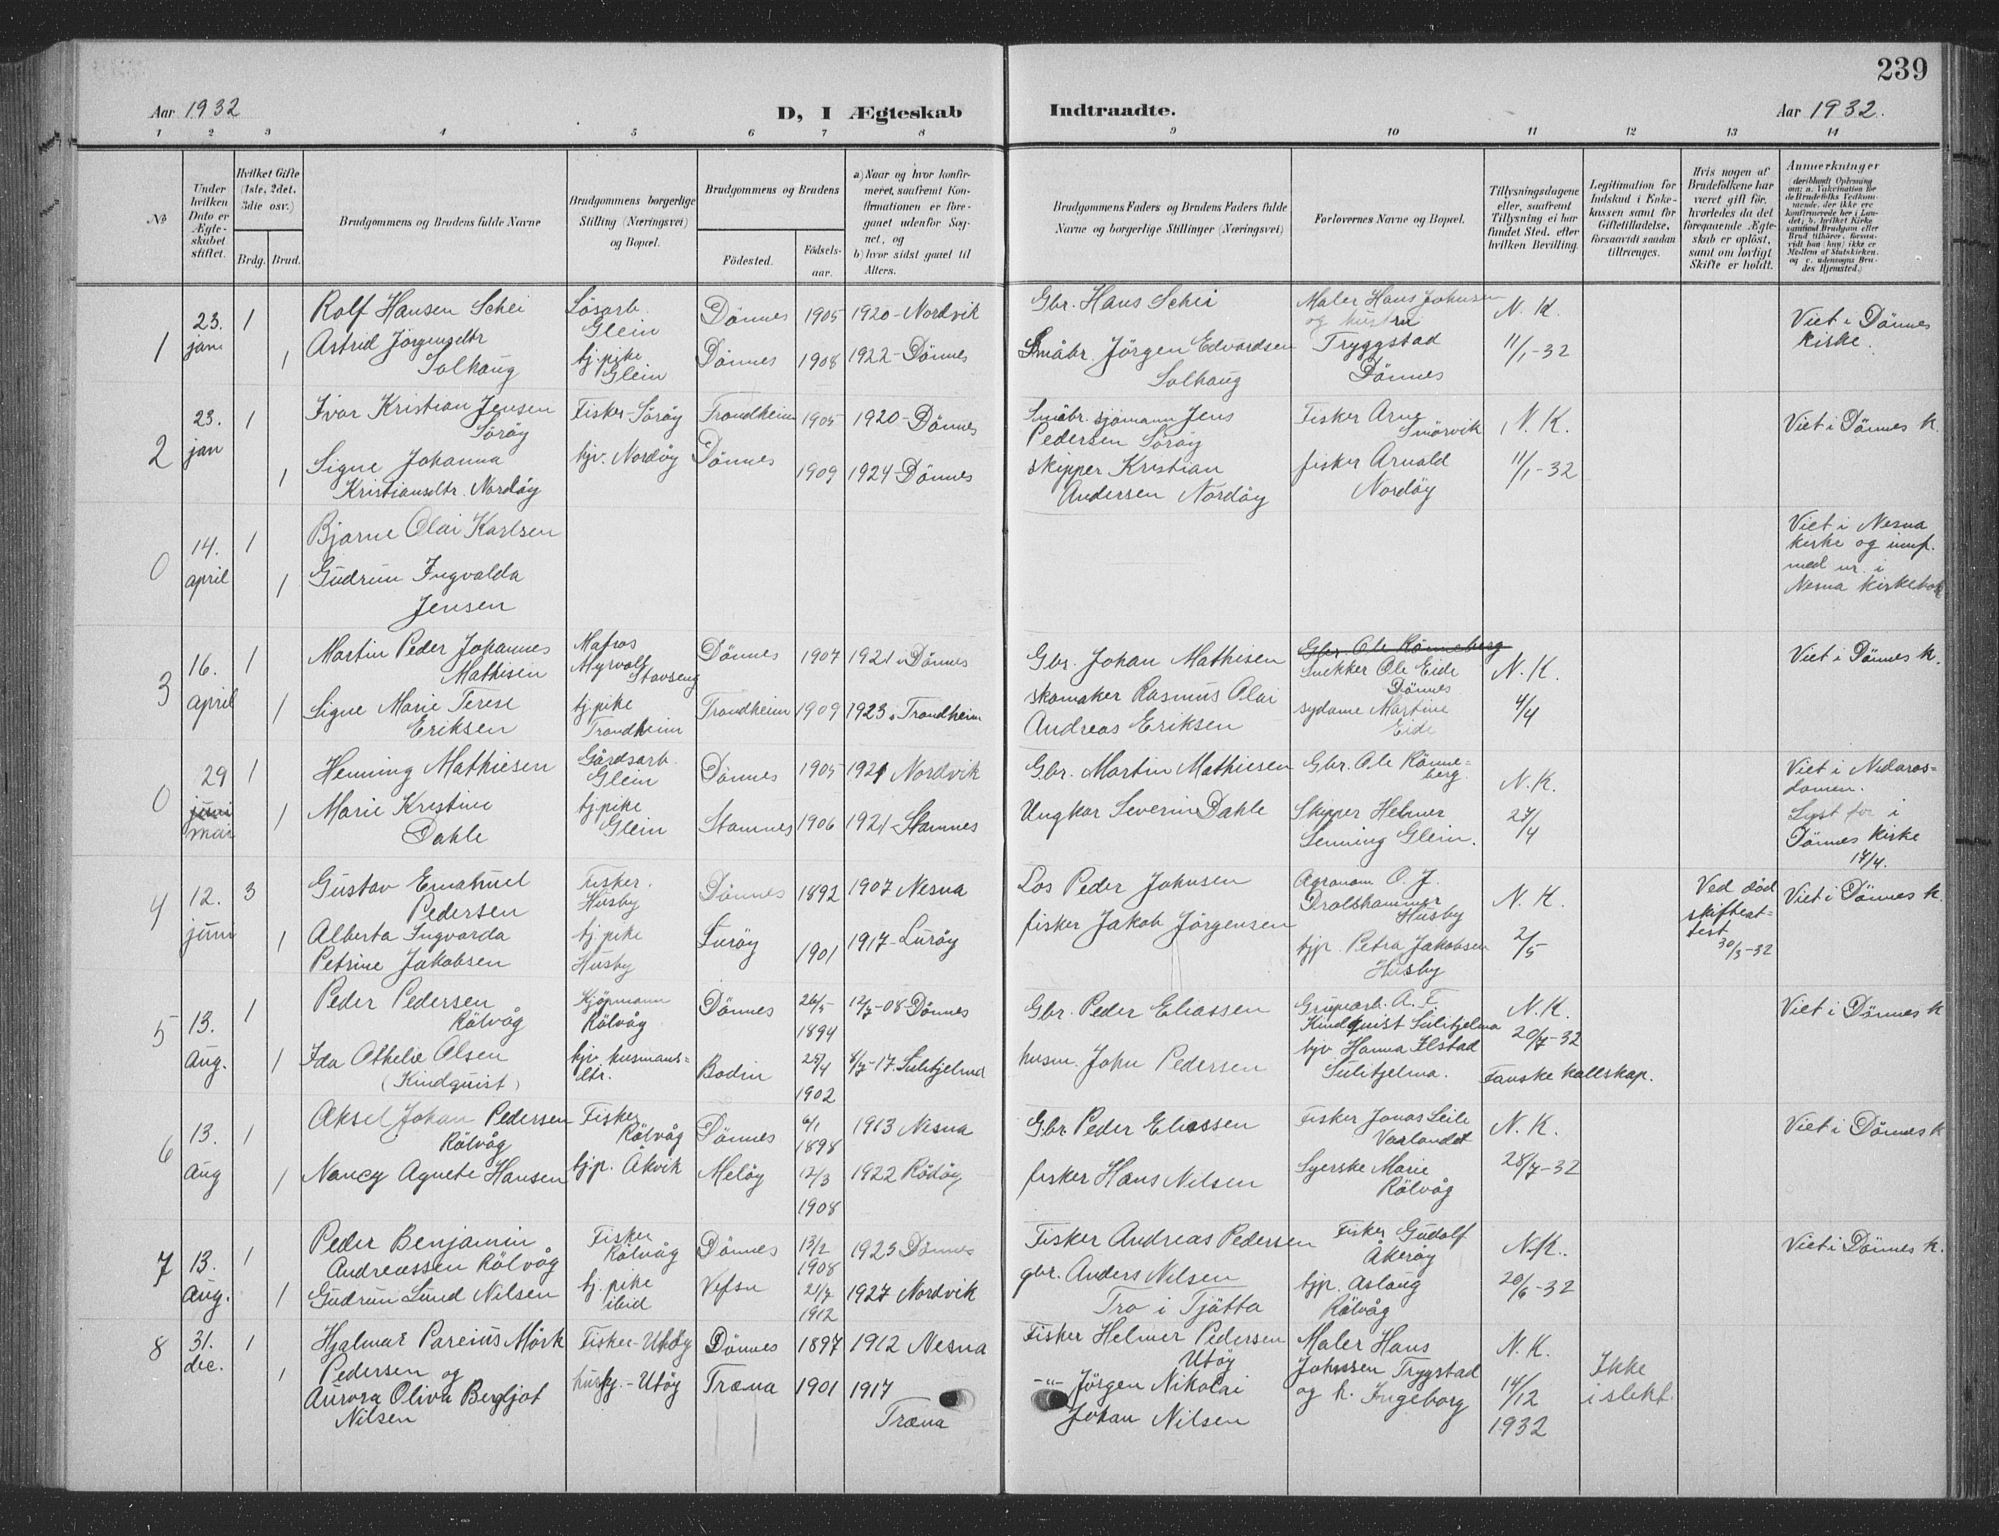 239
Aar 1932
D, I Ægteskab Indtraadte.
Aar 1932.
1 2 3 4 5 6 7 8 9 10 11 12 13 14
No
Under hvilken Dato er Ægteskabet stiftet.
Hvilket Gifte (1ste, 2det, 3die osv.)
Brdg. Brud.
Brudgommens og Brudens fulde Navne
Brudgommens borgerlige Stilling (Næringsvei) og Bopæl.
Brudgommens og Brudens
Fødested.
Fødselsaar.
a) Naar og hvor konfirmeret, saafremt Konfirmationen er foregaaet udenfor Sognet, og
b) hvor sidst gaaet til Alters.
Brudgommens Faders og Brudens Faders fulde Navne og borgerlige Stillinger (Næringsvei)
Forlovernes Navne og Bopæl.
Tillysningsdagene eller, saafremt Tillysning ei har fundet Sted, efter hvilken Bevilling.
Legitimation for Indskud i Enkekassen samt for Giftetilladelse, forsaavidt saadan tiltrænges.
Hvis nogen af Brudefolkene har været gift før, hvorledes da det foregaaende Ægteskab er opløst, samt om lovligt Skifte er holdt.
Anmerkninger
1 23. jan 1 Rolf Hansen Schei Løsarb. Glein Dønnes 1905 1920 - Nordvik Gbr. Hans Schei Maler Hans Johnsen og hustru N. K. Viet i Dønnes kirke.
1 Astrid Jørgensdtr Solhaug tj. pike Glein Dønnes 1908 1922 - Dønnes Småbr. Jörgen Edvardsen Solhaug Tryggstad Dönnes 11/1-32
2 23. jan 1 Ivar Kristian Jensen Sörøy Fisker - Sörøy Trondheim 1905 1920 - Dønnes Småbr. sjömann Jens Pedersen Söröy Fisker Arne Smörvik N. K. Viet i Dønnes k.
1 Signe Johanna Kristiansdtr. Nordöy hjv. Nordöy Dönnes 1909 1924 - Dönnes skipper Kristian Andersen Nordöy fisker Arnold Nordöy 11/1-32
0 14. april 1 Bjarne Olai Karlsen Viet i Nesna kirke og innf. med nr. i Nesna kirkebok
1 Gudrun Ingvalda Jensen
3 16. april 1 Martin Peder Johannes Mathisen Matros Myrvoll Stavseng Dönnes 1907 1921 i Dønnes Gbr. Johan Mathisen Gbr. Ole Rönneberg Snekker Ole Eide Dönnes N. K. Viet i Dønnes k.
1 Signe Marie Terese Eriksen tj. pike Trondheim Trondheim 1909 1923 i Trondheim skomaker Rasmus Olai Andreas Eriksen sydame Martine Eide 4/4
0 29 juni mai 1 Henning Mathiesen Gårdsarb. Glein Dönnes 1905 1921 Nordvik Gbr. Martin Mathiesen Gbr. Ole Rönneberg N. K. Viet i Nidarosdomen.
1 Marie Kristine Dahle tj. pike Glein Stamnes 1906 1921 - Stamnes Ungkar Severin Dahle Skipper Helmer Senning Glein. 27/4 Lyst for i Dønnes kirke 17/4.
4 12. juni 3 Gustav Emanuel Pedersen Fisker. Husby Dönnes 1892 1907 Nesna Los Peder Johnsen Agronom O. J. Drolshammer Husby N. K. Ved död skifteattest 30/3-32 Viet i Dønnes k.
1 Alberta Ingvarda Petrine Jakobsen tj. pike Husby Luröy 1901 1917 - Luröy fisker Jakob Jörgensen tjp. Petra Jakobsen Husby 2/5
5 13. Aug. 1 Peder Pedersen Rölvåg Kjöpmann Rölvåg Dönnes 26/5 1894 12/7-08 Dönnes Gbr. Peder Eliassen Gruvearb. A. F. Kindquist Sulitjelma N. K. 20/7-32 Viet i Dønnes k
1 Ida Athelie Olsen (Kindquist) hjv. husmansdtr. Bodin 25/4 1902 8/7-17. Sulitjelma husm. John Pedersen hjv Hanna Ilstad Sulitjelma. Fauske kallskap.
6 13. Aug 1 Aksel Johan Pedersen Rölvåg Fisker Rölvåg Dönnes 6/1 1898 1913 Nesna Gbr. Peder Eliassen Fisker Jonas Leili Vaslandet N. K. Viet i Dönnes k
1 Nancy Agnete Hansen tj. p. Åkvik Melöy 12/3 1908 1922 Rödöy fisker Hans Nilsen Syerske Marie Rölvåg 28/7-32
7 13. Aug. 1 Peder Benjamin Andreassen Rölvåg Fisker Rölvåg Dönnes 13/2 1908 1923 Dönnes Fisker Andreas Pedersen Fisker Gudolf Åkeröy N. K. Viet i Dönnes k.
1 Gudrun Lund Nilsen tj. pike ibid Vefsn 21/7 1912 1927 Nordvik gbr. Anders Nilsen Tro i Tjötta tjp. Aslaug Rölvåg 20/6-32
8 31. dec. 1 Hjalmar Pareius Mörk Pedersen og Fisker - Utöy Dönnes 1897 1912 Nesna Fisker Helmer Pedersen Utöy Maler Hans Johnsen Trygstad N. K. Ikke i slekt
1 Aurora Oliva Bergljot Nilsen - Utöy Træna 1901 1917 Træna -"- Jörgen Nikolai Johan Nilsen og h. Ingeborg 14/12 1932